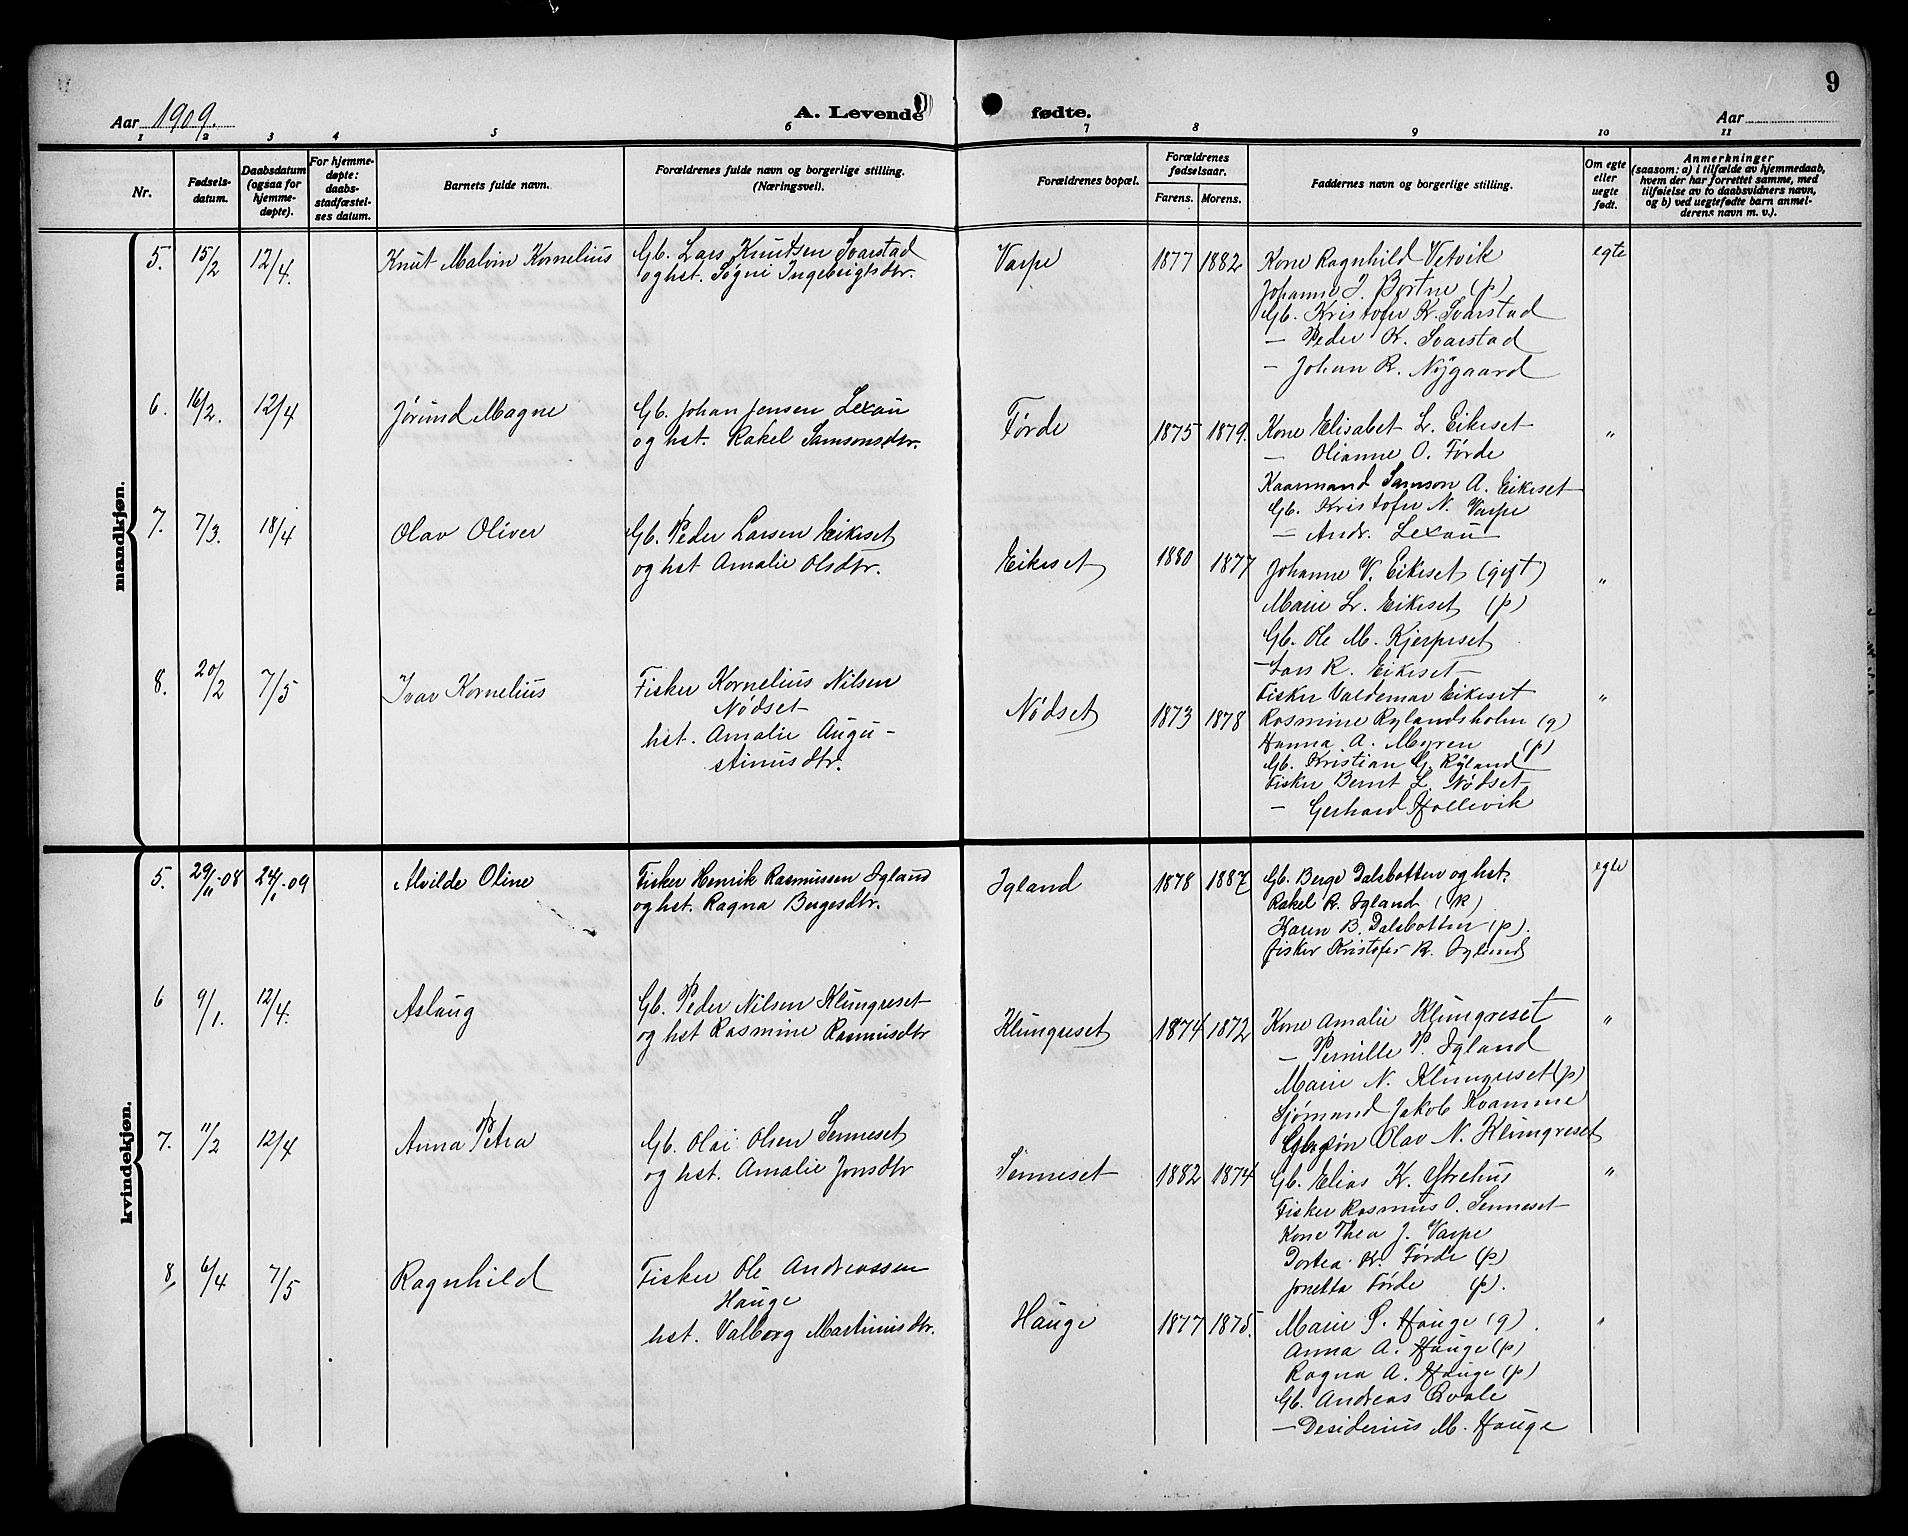 9
Aar 1909. A. Levende fødte. Aar
1 2 3 4 5 6 7 8 9 10 11
Nr. Fødsels-datum. Daabsdatum (ogsaa for hjemme-døpte). For hjemme-døpte: daabs-stadfæstel-ses datum. Barnets fulde navn. Forældrenes fulde navn og borgerlige stilling. (Næringsvei). Forældrenes bopæl. Forældrenes fødselsaar. Farens. Morens. Faddernes navn og borgerlige stilling. Om egte eller uegte født. Anmerkninger (saasom: a) i tilfælde av hjemmedaab, hvem der har forrettet samme, med tilføielse av to daabsvidners navn, og b) ved uegtefødte barn anmel-derens navn m. v.).
mandkjøn.
5. 15/2 12/4. Knut Malvin Kornelius Gb. Lars Knutsen Svarstad Varpe 1877 1882 Kone Ragnhild Vetvik egte
og hst. Søgni Ingebrigtsdtr.
Johanne J. Bortne (p)
Gb. Kristofer K. Svarstad
— Peder K. Svarstad
— Johan R. Nygaard
6. 16/2. 12/4 Jørund Magne Gb. Johan Jensen Lexau Førde 1875 1879. Kone Elisabet L. Eikeset "
og hst. Rakel Samsonsdtr.
— Olianne O. Førde
Kaarmand Samson A. Eikeset
Gb. Kristofer N. Varpe
— Andr. Lexau
7. 7/3. 18/4 Olav Oliver Gb. Peder Larsen Eikeset Eikeset 1880 1877 Johanne V. Eikeset (gift) "
og hst Amalie Olsdtr.
Marie L. Eikeset (p)
Gb. Ole M. Kjerpeset
— Lars R. Eikeset
Fisker Valdemar Eikeset
8. 20/2 7/5 Ivar Kornelius Fisker Kornelius Nilsen Nødset 1873 1878 Rasmine Rylandsholm (g) "
Nødset
hst. Amalie Augu-
stinusdtr.
Hanna A. Myren (p)
Gb. Kristian G. Ryland
Fisker Bernt L. Nødset
— Gerhard Hollevik
kvindekjøn.
5. 29/11-08 24/1-09 Alvilde Oline Fisker Henrik Rasmussen Igland Igland 1878 1887 Gb. Berge Dalsbotten og hst. egte
og hst. Ragna Bergesdtr.
Rakel R. Igland (K)
Karen B. Dalsbotten (p).
Fisker Kristofer R. Igland
6 9/1. 12/4. Aslaug Gb. Peder Nilsen Klungreset Klungreset 1874 1872 Kone Amalie Klungreset "
og hst Rasmine Rasmusdtr
— Pernille P. Igland
Marie N. Klungreset (p)
Sjømand Jakob Kvamme
Gbrsøn Olav N. Klungreset
7. 11/2 12/4 Anna Petra Gb. Olai Olsen Senneset Senneset 1882 1874 Gb. Elias K. Ytrehus "
og hst. Amalie Jonsdtr
Fisker Rasmus O. Senneset
Kone Thea J. Varpe
Dortea K. Førde (p)
Jonetta Førde (p).
8, 6/4 7/5 Ragnhild Fisker Ole Andreassen Hauge 1877 1875. Marie S. Hauge (g). "
Hauge
hst. Valborg Martinusdtr.
Anna A. Hauge (p)
Ragna A. Hauge (p)
Gb. Andreas Qvale
— Desiderius M. Hauge